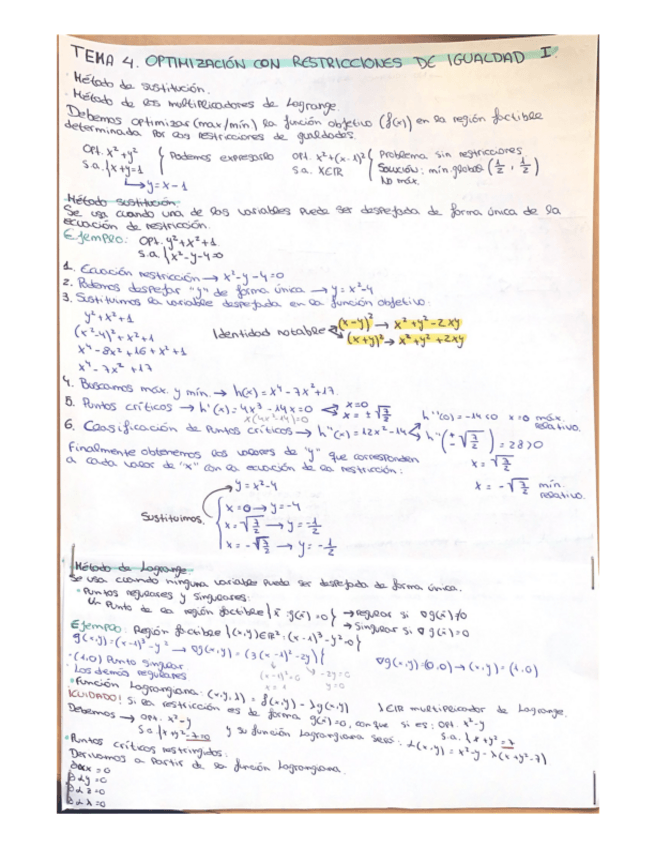 TEMA 4. OPTIMIZACIÓN CON RESTRICCIONES DE IGUALDAD I.
· Método de sustitución.
· Método de los multiplicadores de Lagrange.
Debemos optimizar (max/mín) la función objetivo (f(x)) en la región factible
determinada por las restricciones de igualdades.
Opt. x²+y² { Podemos expresarlo opt. x²+(x-1)² { Problema sin restricciones
s.a. {x+y=1 s.a. x∈IR Solución: mín. global (1/2, 1/2)
→ y=x-1 No máx.
Método sustitución:
Se usa cuando una de las variables puede ser despejada de forma única de la
ecuación de restricción.
Ejemplo: Opt. y²+x²+1
s.a. {x²-y-4=0
1. Ecuación restricción → x²-y-4=0
2. Podemos despejar "y" de forma única → y=x²-4
3. Sustituimos la variable despejada en la función objetivo:
y²+x²+1
(x²-4)²+x²+1
x⁴-8x²+16+x²+1
x⁴-7x²+17
Identidad notable (x-y)² → x²+y²-2xy
(x+y)² → x²+y²+2xy
4. Buscamos máx. y mín. → h(x)=x⁴-7x²+17.
5. Puntos críticos → h'(x)=4x³-14x=0 x=0
x=±√7/2
x(4x²-14)=0
6. Clasificación de puntos críticos → h''(x)=12x²-14 h''(0)=-14<0 x=0 máx. relativo.
h''(±√7/2)=28>0
x=√7/2
x=-√7/2 mín. relativo.
Finalmente obtenemos los valores de "y" que corresponden
a cada valor de "x" con la ecuación de la restricción:
→ y=x²-4
Sustituimos. { x=0 → y=-4
x=√7/2 → y=-1/2
x=-√7/2 → y=-1/2
Método de Lagrange:
Se usa cuando ninguna variable puede ser despejada de forma única.
• Puntos regulares y singulares:
Un punto de la región factible {x̄: g(x̄)=0} → regular si ∇g(x̄)≠0
→ singular si ∇g(x̄)=0
Ejemplo: Región factible {(x,y)∈IR²: (x-1)³-y²=0}
g(x,y)=(x-1)³-y² → ∇g(x,y)=(3(x-1)²-2y)
· (1,0) Punto singular
· Los demás regulares
(x-1)²=0 -2y=0
x=1 y=0
∇g(x,y)=(0,0) → (x,y)=(1,0)
• Función Lagrangiana: (x,y,λ)=f(x,y)-λg(x,y) λ∈IR multiplicador de Lagrange.
¡CUIDADO! Si la restricción es de forma g(x̄)=0, con que si es: opt. x²-y
s.a. {x+y²=7
Debemos → opt. x²-y
s.a. {x+y²-7=0 y su función Lagrangiana será: L(x,y)=x²-y-λ(x+y²-7)
• Puntos críticos restringidos:
Derivamos a partir de la función Lagrangiana.